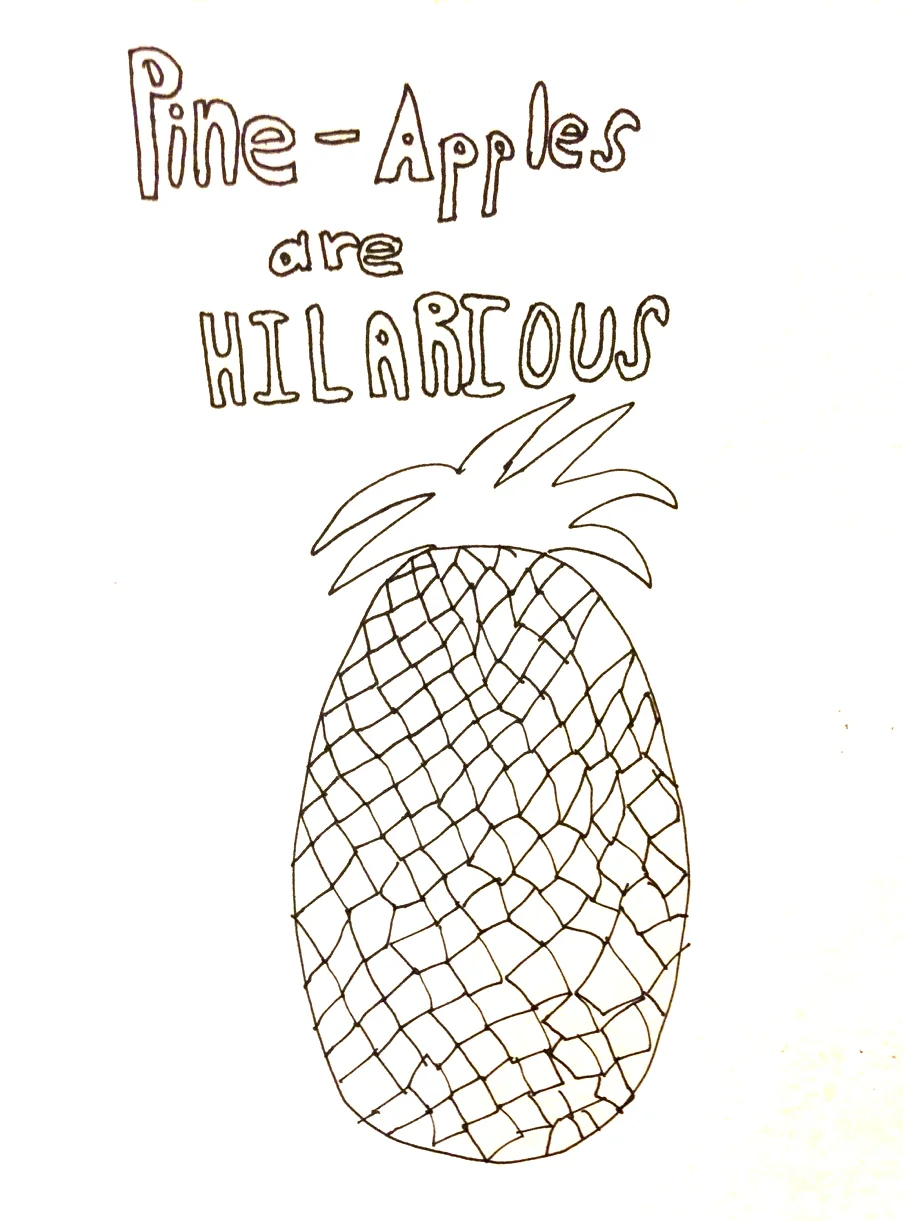 Pine-Apples
are
HILARIOUS